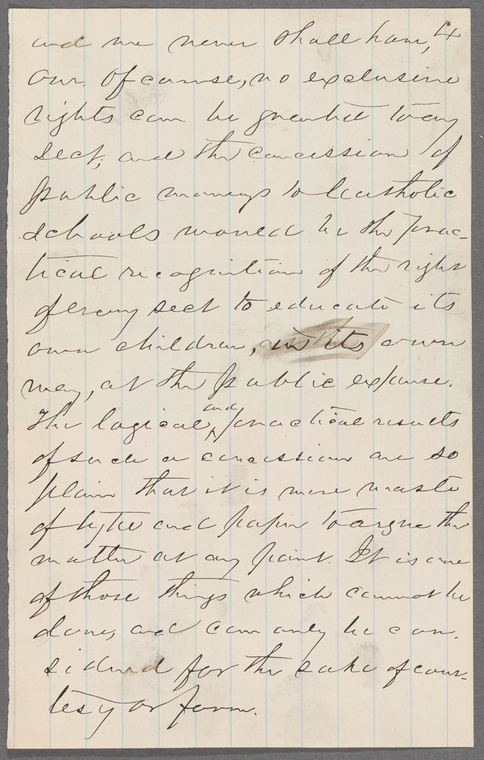 and we never shall have, 4
one. Of course, no exclusive
rights can be granted to any
sect, and the concession of
public moneys to Catholic
schools would be the prac-
tical recognition of the right
of every sect to educate its
own children, in its own
way, at the public expense.
The logical, and practical results
of such a concession are so
plain that it is mere waste
of type and paper to argue the
matter at any point. It is one
of those things which cannot be
done, and can only be con-
sidered for the sake of cour-
tesy or form.